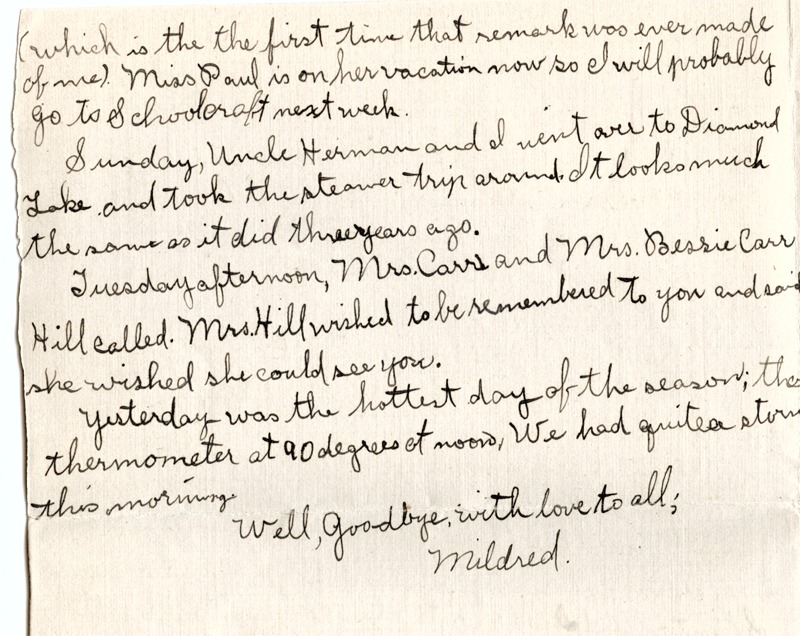 (which is the the first time that remark was ever made
of me). Miss Paul is on her vacation now so I will probably
go to Schoolcraft next week.
Sunday, Uncle Herman and I went over to Diamond
Lake and took the steamer trip around. It looks much
the same as it did three years ago.
Tuesday afternoon, Mrs. Carr and Mrs. Bessie Carr
Hill called. Mrs. Hill wished to be remembered to you and said
she wished she could see you.
Yesterday was the hottest day of the season; the
thermometer at 90 degrees at noon, We had quite a storm
this morning.
Well, Goodbye, with love to all;
Mildred.